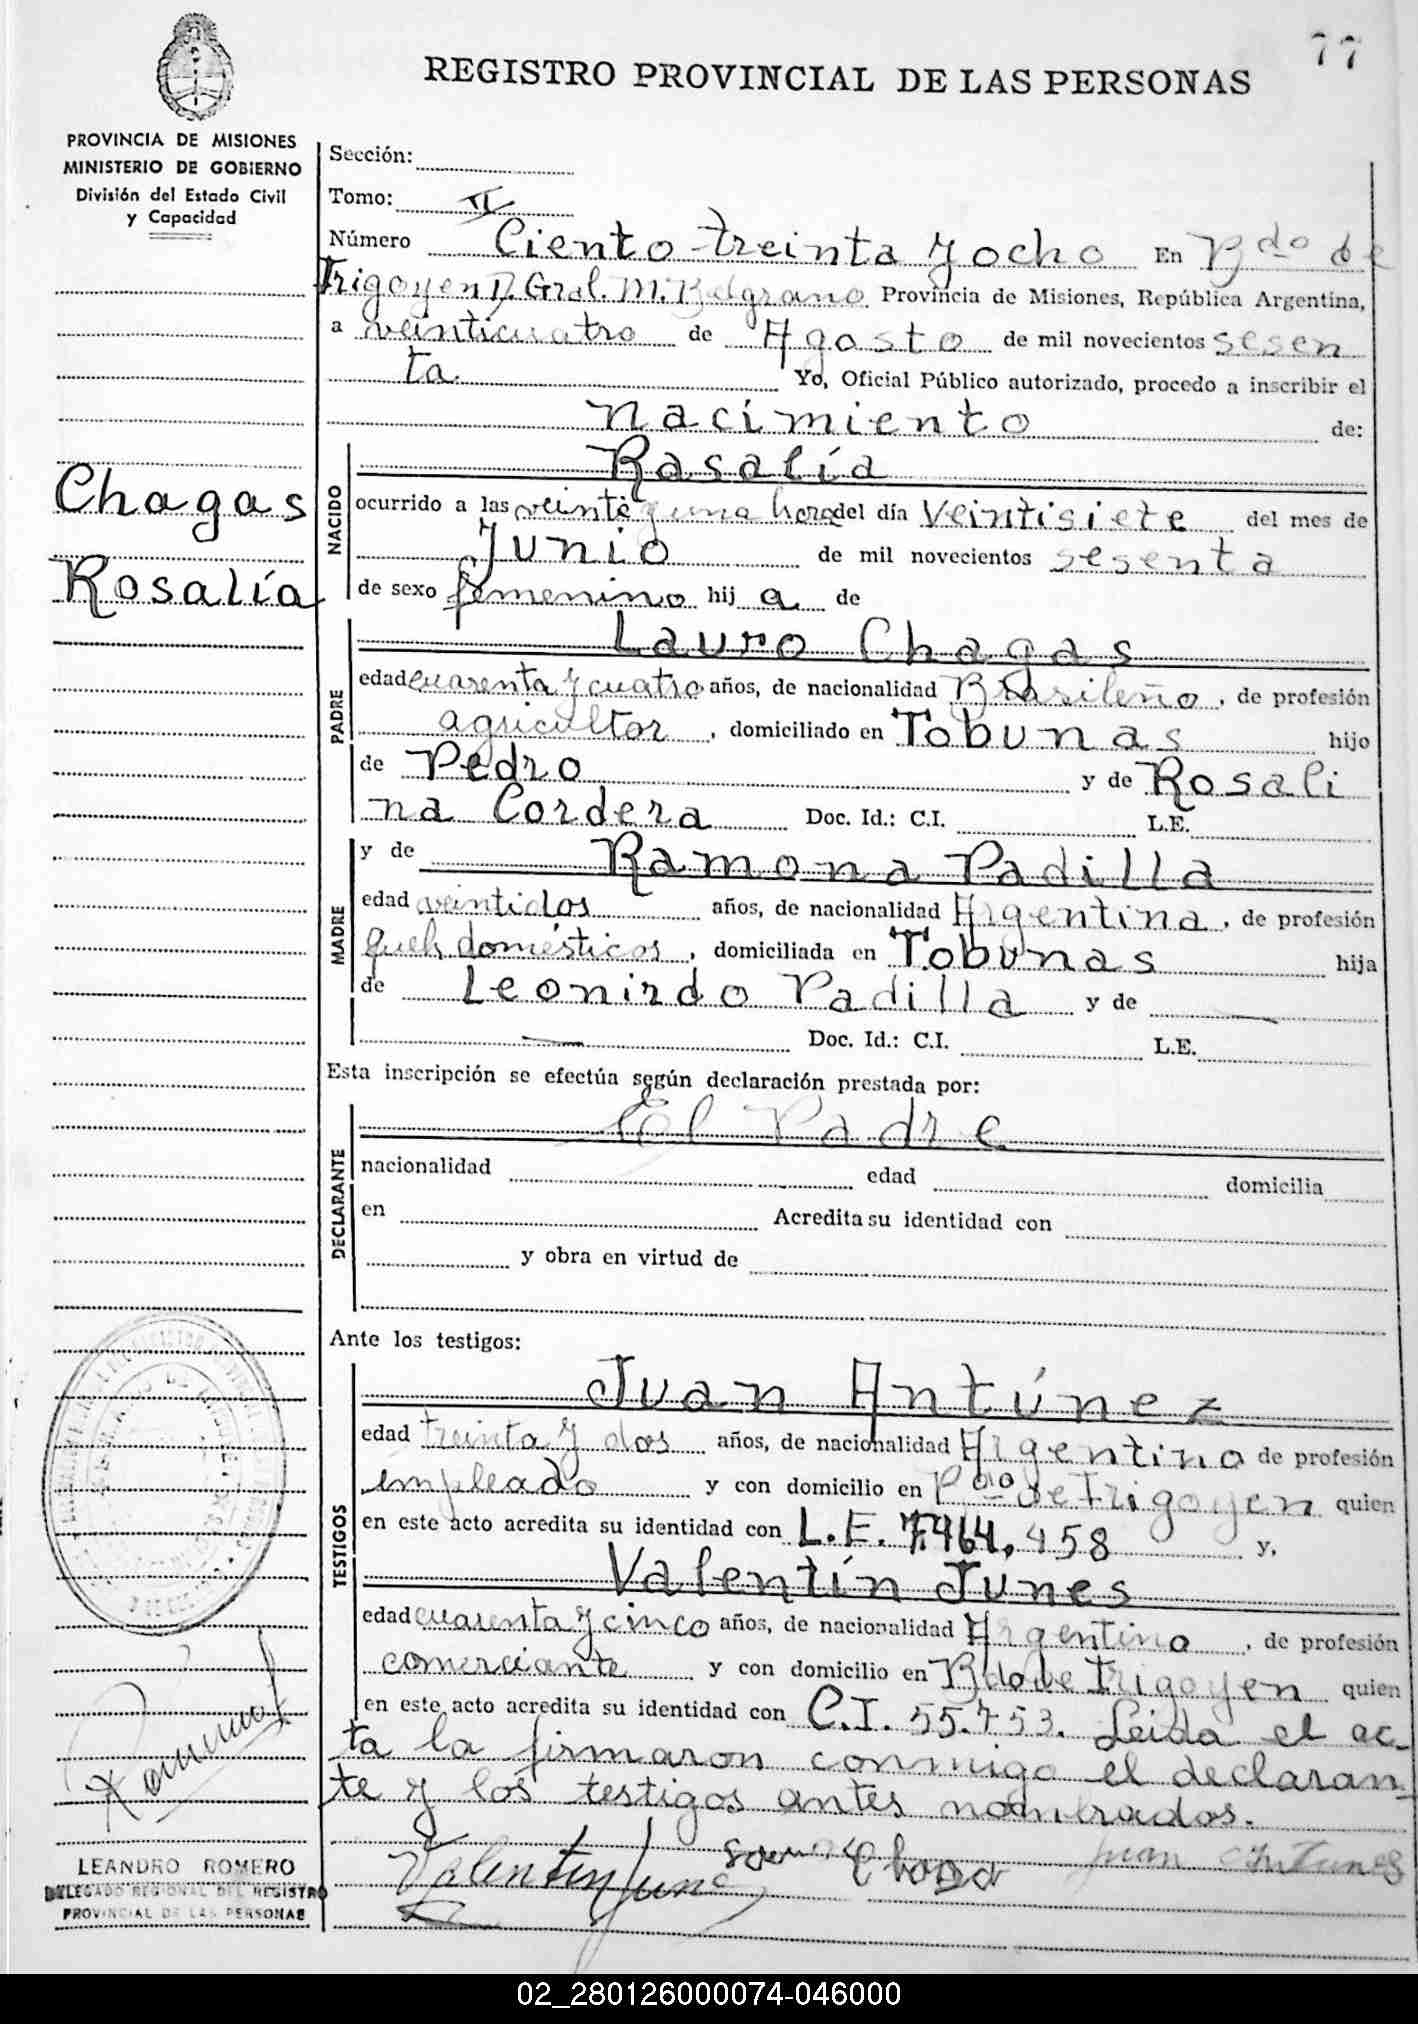 77
REGISTRO PROVINCIAL DE LAS PERSONAS
PROVINCIA DE MISIONES
MINISTERIO DE GOBIERNO
División del Estado Civil
y Capacidad
Chagas
Rosalía
Sección:
Tomo: II
Número Ciento treinta y ocho En Bdo de
Irigoyen D. Gral. M. Belgrano Provincia de Misiones, República Argentina,
a veinticuatro de Agosto de mil novecientos sesen
ta. Yo, Oficial Público autorizado, procedo a inscribir el
nacimiento de:
NACIDO
Rosalía
ocurrido a las veinte y una hora del día veintisiete del mes de
Junio de mil novecientos sesenta
de sexo femenino hij a de
PADRE
Lauro Chagas
edad cuarenta y cuatro años, de nacionalidad Brasileño, de profesión
agricultor, domiciliado en Tobunas hijo
de Pedro y de Rosali
na Cordera Doc. Id.: C.I. L.E.
MADRE
y de Ramona Padilla
edad veintidos años, de nacionalidad Argentina, de profesión
queh. domésticos, domiciliada en Tobunas hija
de Leonirdo Padilla y de —
— Doc. Id.: C.I. L.E.
Esta inscripción se efectúa según declaración prestada por:
DECLARANTE
El Padre
nacionalidad edad domicilia
en Acredita su identidad con
y obra en virtud de
Ante los testigos:
TESTIGOS
Juan Antúnez
edad treinta y dos años, de nacionalidad Argentino de profesión
empleado y con domicilio en Bdo de Irigoyen quien
en este acto acredita su identidad con L.E. 7.464.458 y,
Valentín Junes
edad cuarenta y cinco años, de nacionalidad Argentino, de profesión
comerciante y con domicilio en Bdo de Irigoyen quien
en este acto acredita su identidad con C.I. 55.753. Leida el ac-
ta la firmaron conmigo el declaran-
te y los testigos antes nombrados.
Valentin Junes
Juan Antunes
LEANDRO ROMERO
DELEGADO REGIONAL DEL REGISTRO
PROVINCIAL DE LAS PERSONAS
02_280126000074-046000